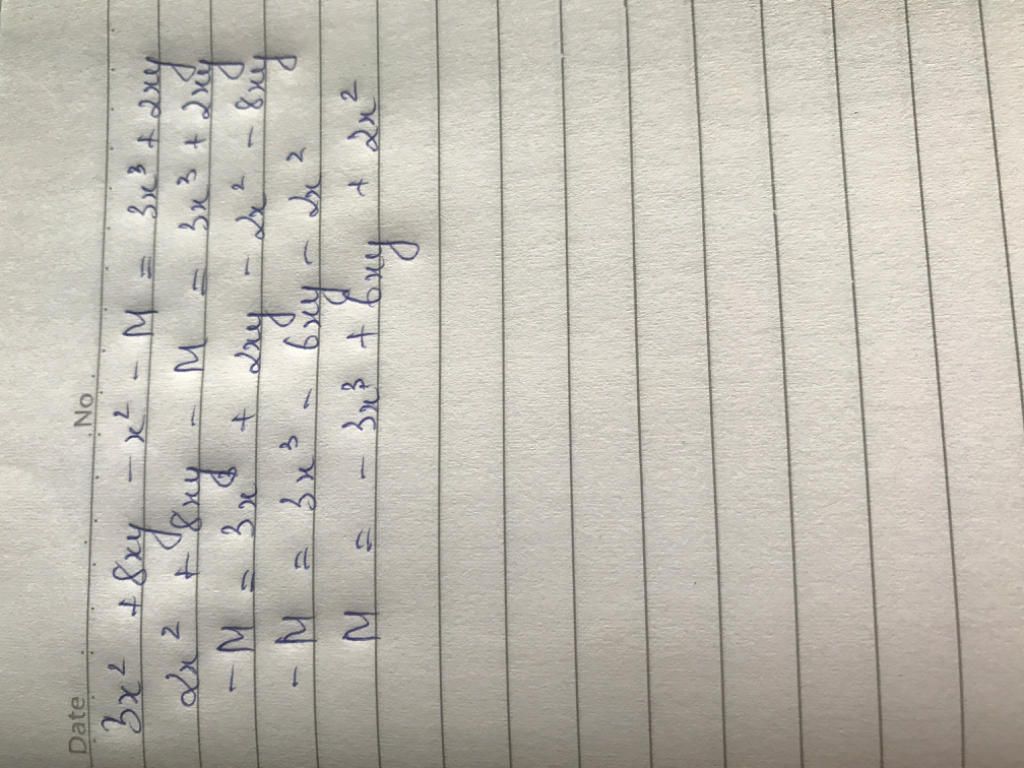 Date No
3x² + 8xy - x² - M = 3x³ + 2xy
2x² + 8xy - M = 3x³ + 2xy
- M = 3x³ + 2xy - 2x² - 8xy
- M = 3x³ - 6xy - 2x²
M = - 3x³ + 6xy + 2x²